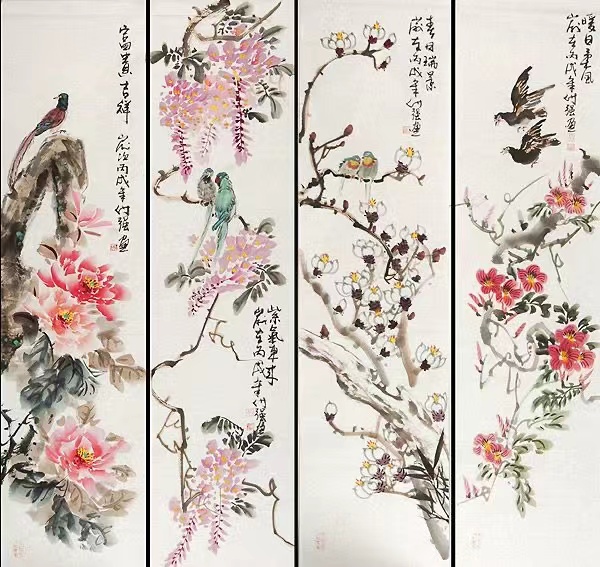 富貴吉祥
歲次丙戌年付强画
紫氣東来
歲在丙戌年付强画
春日瑞景
歲在丙戌年付强画
暖日東風
歲在丙戌年付强画